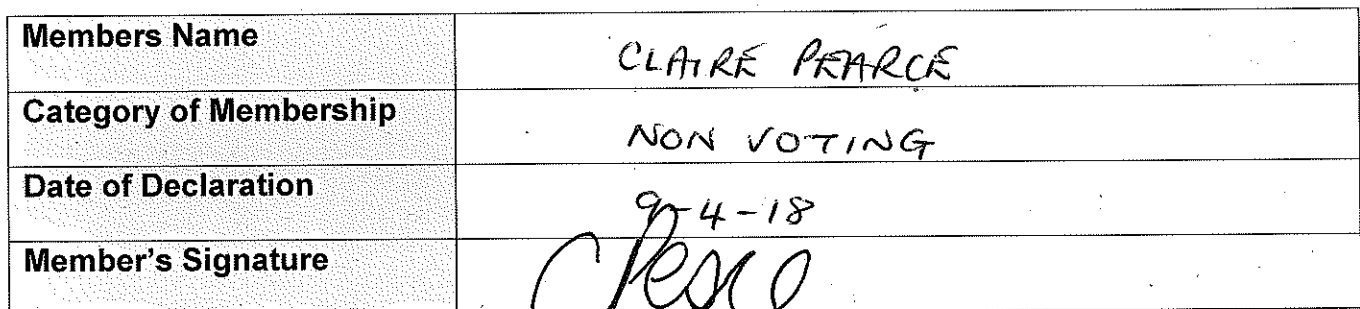 Members Name CLAIRE PEARCE
Category of Membership NON VOTING
Date of Declaration 9-4-18
Member's Signature